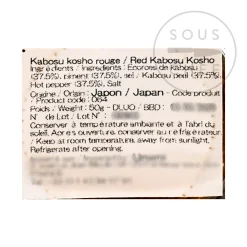 SOUS
Kabosu kosho rouge / Red Kabosu Kosho
Ingrédients / Ingredients : Ecorces de kabosu
(37.5%), piment (37.5%), sel / Kabosu peel (37.5%),
Hot pepper (37.5%), Salt
Origine / Origin : Japon / Japan - Code produit
/ Product code : 064
Poids / Weight : 50g - DLUO / BBD :
N° de Lot / Lot N° :
Conserver à température ambiante et à l'abri du
soleil. Après ouverture, conserver au réfrigérateur.
/ Keep at room temperature, away from sunlight.
Refrigerate after opening.